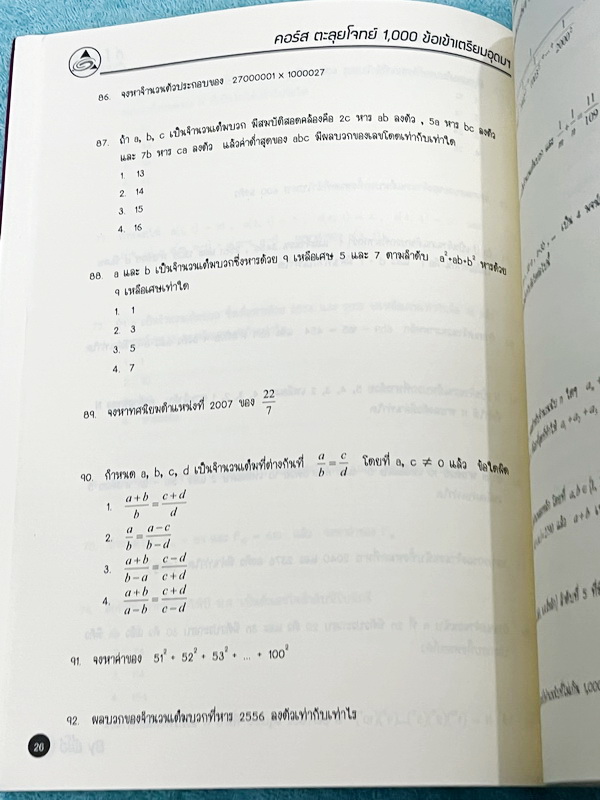 คอร์ส ตะลุยโจทย์ 1,000 ข้อเข้าเตรียมอุดมฯ
86. จงหาจำนวนตัวประกอบของ 27000001 x 1000027
87. ถ้า a, b, c เป็นจำนวนเต็มบวก มีสมบัติสอดคล้องคือ 2c หาร ab ลงตัว , 5a หาร bc ลงตัว
และ 7b หาร ca ลงตัว แล้วค่าต่ำสุดของ abc มีผลบวกของเลขโดดเท่ากับเท่าใด
1. 13
2. 14
3. 15
4. 16
88. a และ b เป็นจำนวนเต็มบวกซึ่งหารด้วย 9 เหลือเศษ 5 และ 7 ตามลำดับ a²+ab+b² หารด้วย
9 เหลือเศษเท่าใด
1. 1
2. 3
3. 5
4. 7
89. จงหาทศนิยมตำแหน่งที่ 2007 ของ 22/7
90. กำหนด a, b, c, d เป็นจำนวนเต็มที่ต่างกันที่ a/b = c/d โดยที่ a, c ≠ 0 แล้ว ข้อใดผิด
1. (a+b)/b = (c+d)/d
2. a/b = (a-c)/(b-d)
3. (a+b)/(b-a) = (c-d)/(c+d)
4. (a+b)/(a-b) = (c+d)/(c-d)
91. จงหาค่าของ 51² + 52² + 53² + ... + 100²
92. ผลบวกของจำนวนเต็มบวกที่หาร 2556 ลงตัวเท่ากับเท่าไร
20